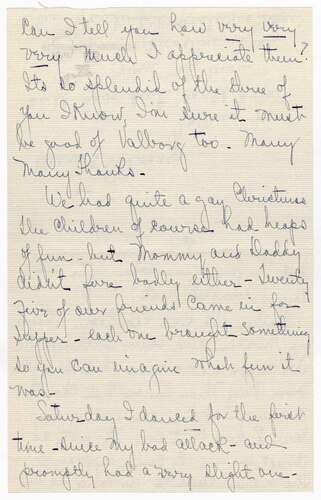 Can I tell you how very very
very much I appreciate them?
Its so splendid of the three of
you I know, I'm sure it must
be good of Valborg too. Many
Many Thanks -
We had quite a gay Christmas
the children of course had heaps
of fun - but Mommy and Daddy
didn't fare badly either - Twenty
Five of our friends came in for
supper - each one brought something
so you can imagine what fun it
was -
Saturday I danced for the first
time - since my bad attack - and
promptly had a very slight one -